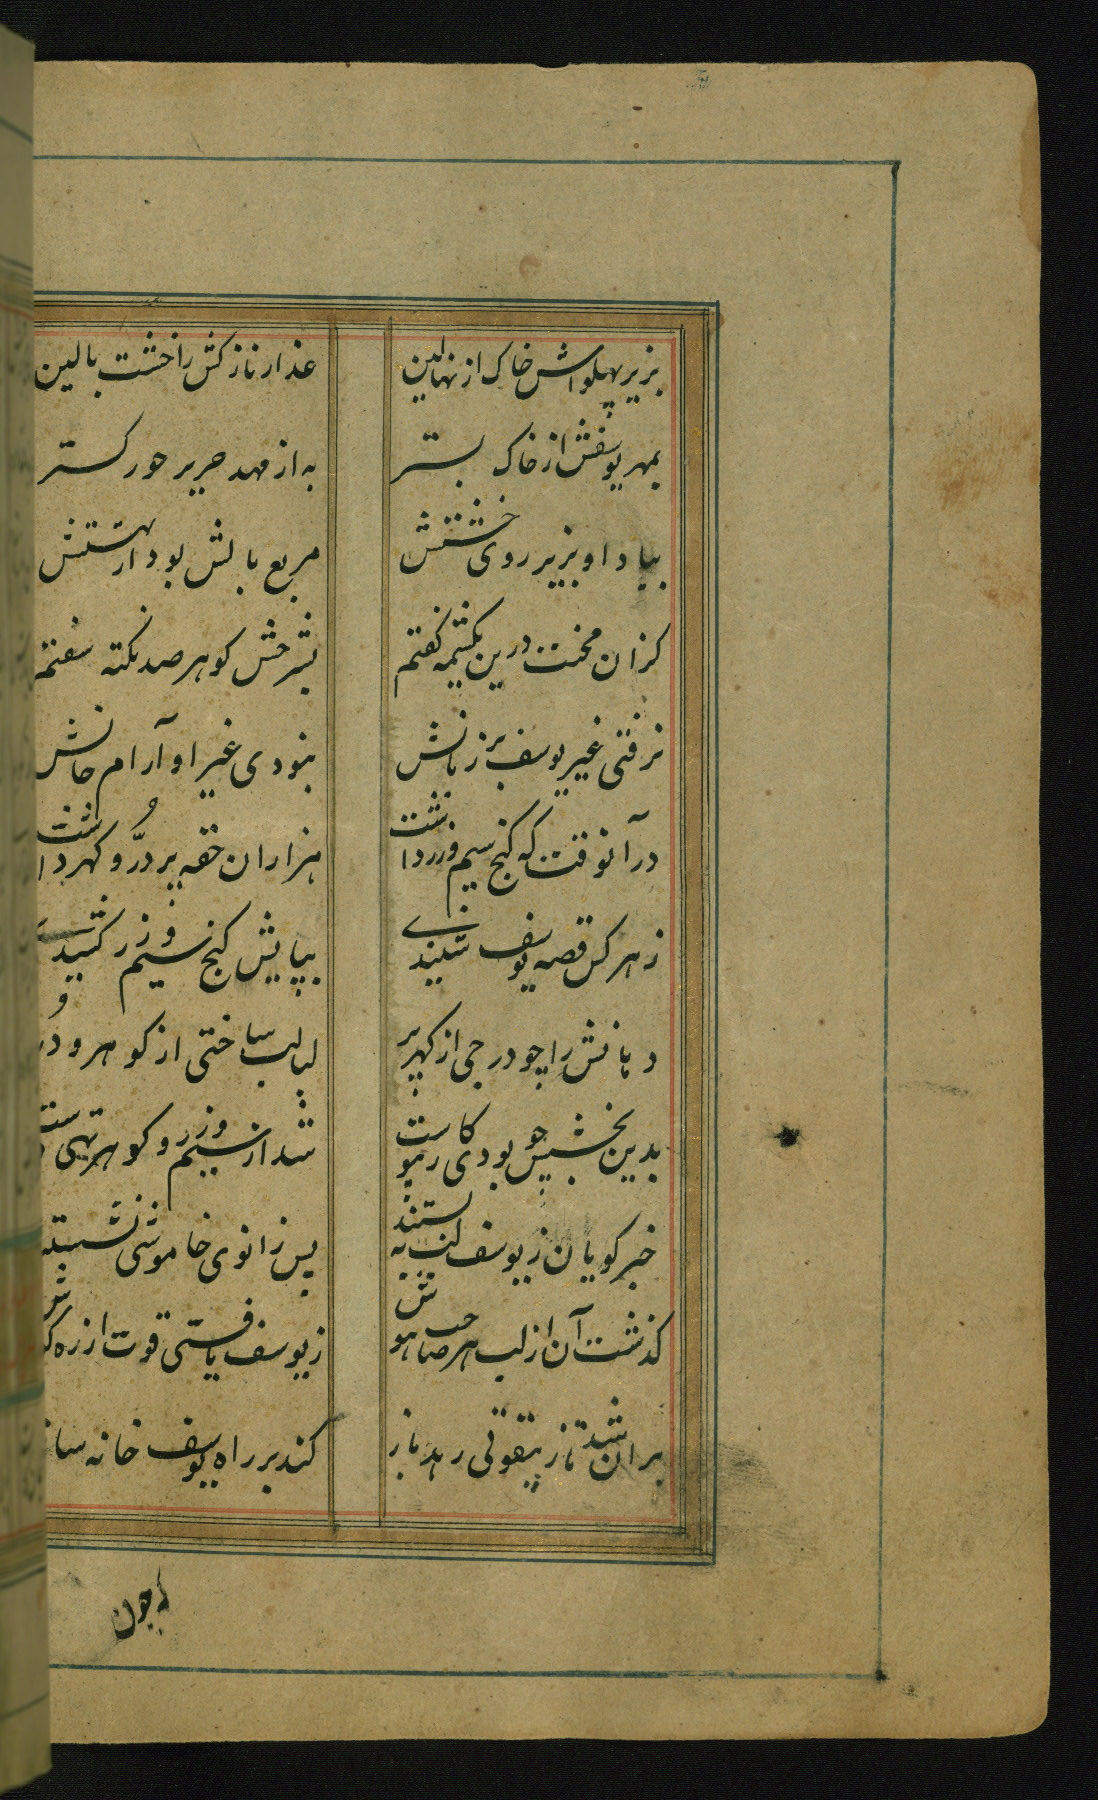 بزیر پهلواش خاک از نهالین عذار نازکش را خشت بالین
بمهر یوسفش از خاک بستر به از مهد حریر حور کستر
بیاد او بزیر روی خشتش مربع بالش بود از بهشتش
کزان محنت درین یکشمه کفتم بشرحش کوهر صد نکته سفتم
نرفتی غیر یوسف بر زبانش نبودی غیر او آرام جانش
در آنوقت که کنج سیم و زر داشت هزاران حقه پر در و کهر داشت
ز هر کس قصه یوسف شنیدی بپایش کنج سیم و زر کشیدی
دهانش را چو درجی از کهر پر لبالب ساختی از کوهر و در
بدین بخشیش چو بودی کاست شد از سیم و زر و کوهر تهی
خبر کویان ز یوسف لب به بستند پس زانوی خاموشی نشستند
کذشت آن از لب هر صاحب هوش ز یوسف یافتی قوت از ره
بر آن شد تا ز بیقوتی رهد باز کند بر راه یوسف خانه
چون